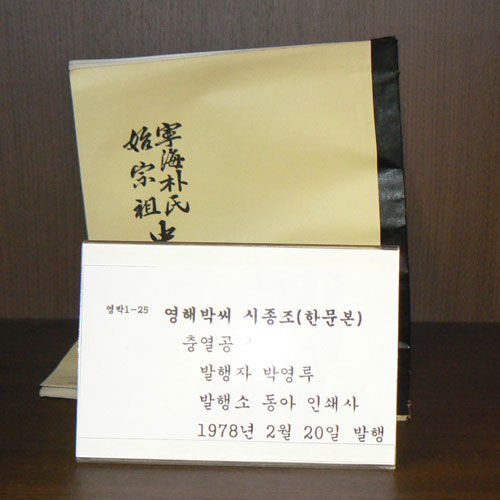 寧海朴氏
始宗祖
영박1-25 영해박씨 시종조(한문본)
충열공
발행자 박영루
발행소 동아 인쇄사
1978년 2월 20일 발행